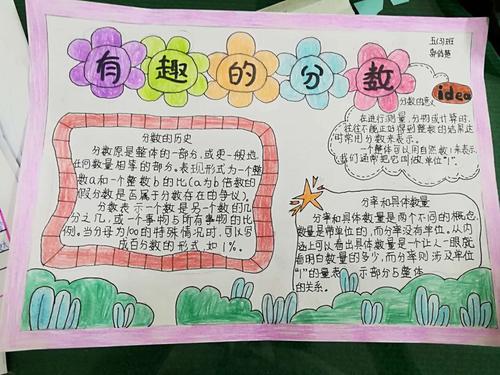 有趣的分数
五(3)班
idea
分数的意义
在进行测量、分物或计算时,
往往不能正好得到整数的结果,这
时常用分数来表示。
一个整体可以用自然数1来表示,
我们通常把它叫做单位"1"。
分数的历史
分数原是整体的一部分,或更一般地,
任何数量相等的部分。表现形式为一个整
数a和一个整数b的比(a为b倍数的
假分数是否属于分数存在争议)。
分数表示一个数是另一个数的几
分之几,或一个事物与所有事物的比
例。当分母为100的特殊情况时,可以写
成百分数的形式,如1%。
分率和具体数量
分率和具体数量是两个不同的概念,
数量是带单位的,而分率没有单位。从内
涵上可以看出具体数量是一个让人一眼就
看明白数量的多少,而分率则涉及单位
"1"的量表示部分与整体
的关系。